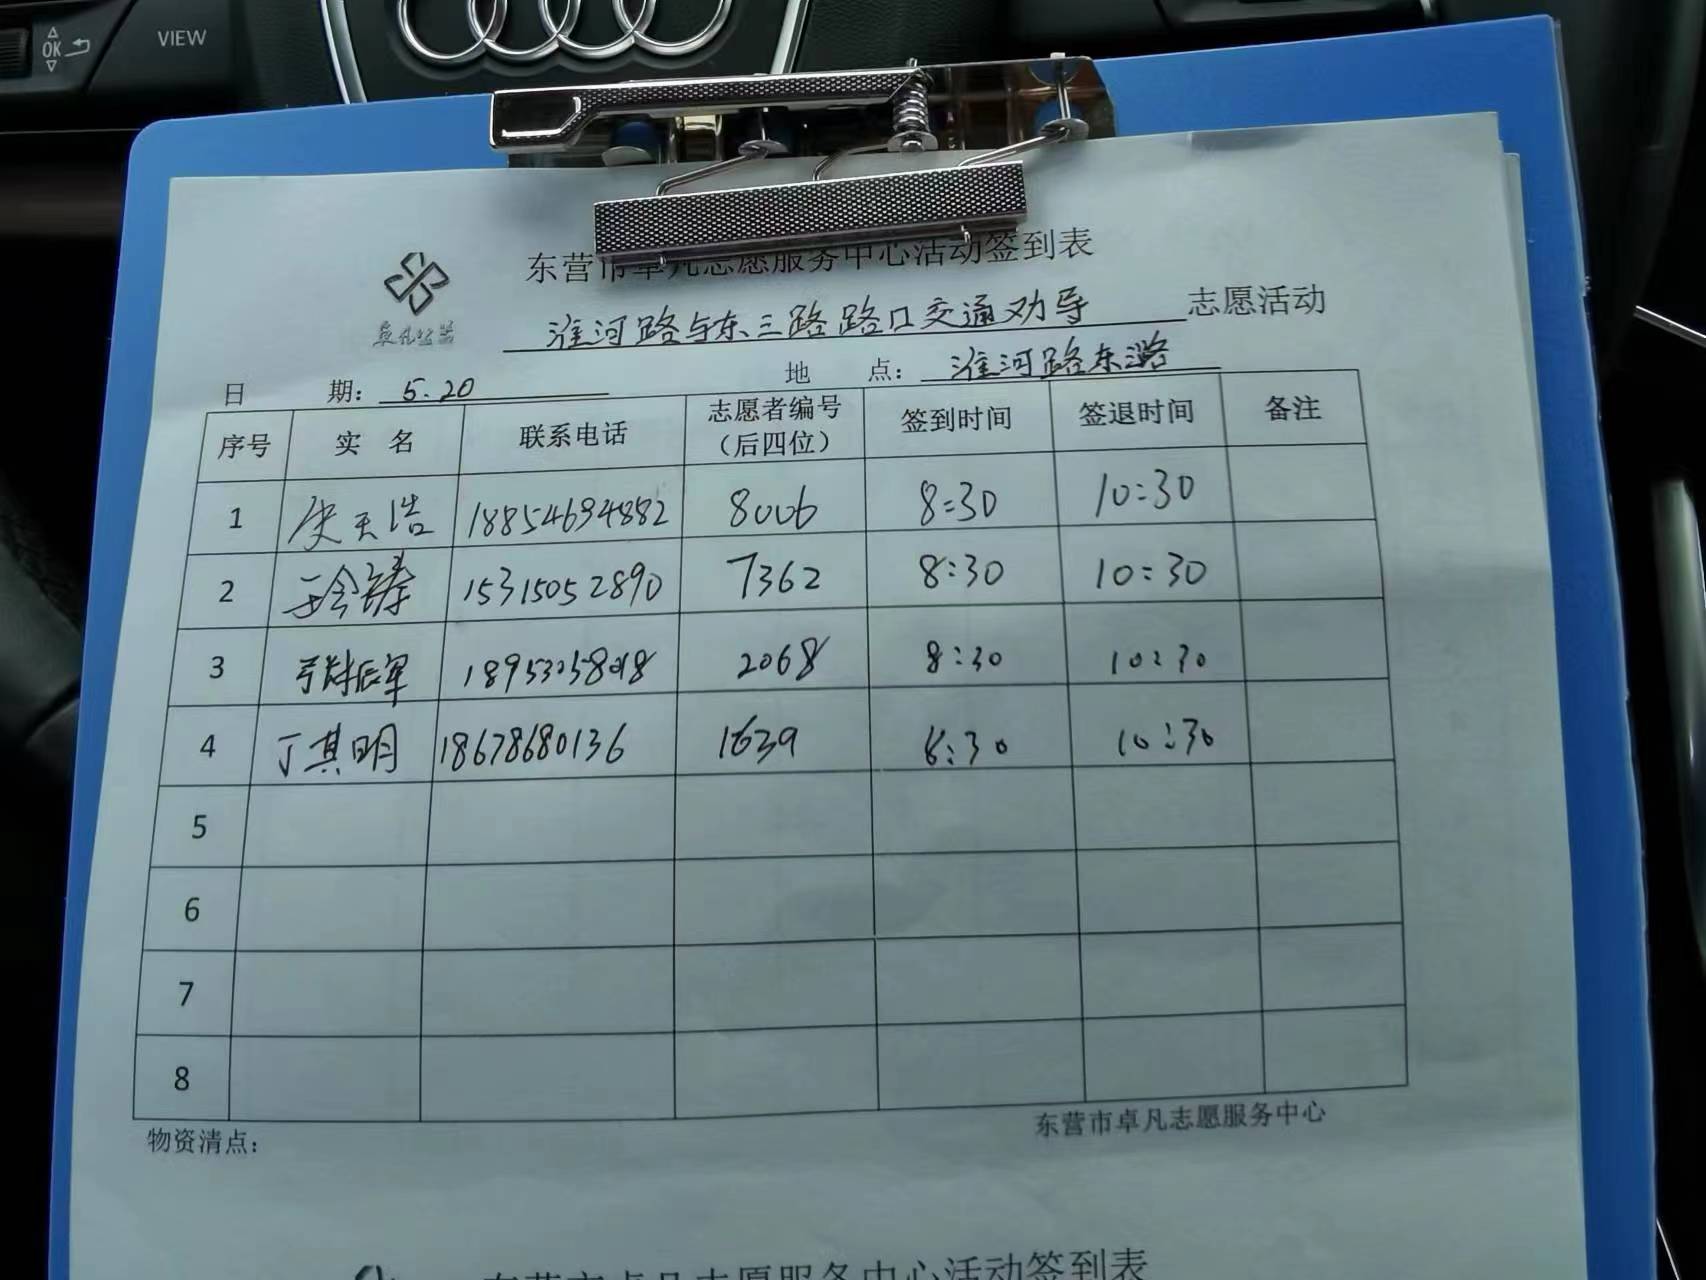 OK
VIEW
东营市卓凡志愿服务中心活动签到表
卓凡公益
淮河路与东三路路口交通劝导 志愿活动
日 期：5.20 地 点：淮河路东三路
序号 实 名 联系电话 志愿者编号（后四位） 签到时间 签退时间 备注
1 天浩 18854694882 8006 8:30 10:30
2 15315052890 7362 8:30 10:30
3 2068 8:30 10:30
4 丁其明 18678680136 1639 8:30 10:30
5
6
7
8
物资清点： 东营市卓凡志愿服务中心
东营市卓凡志愿服务中心活动签到表